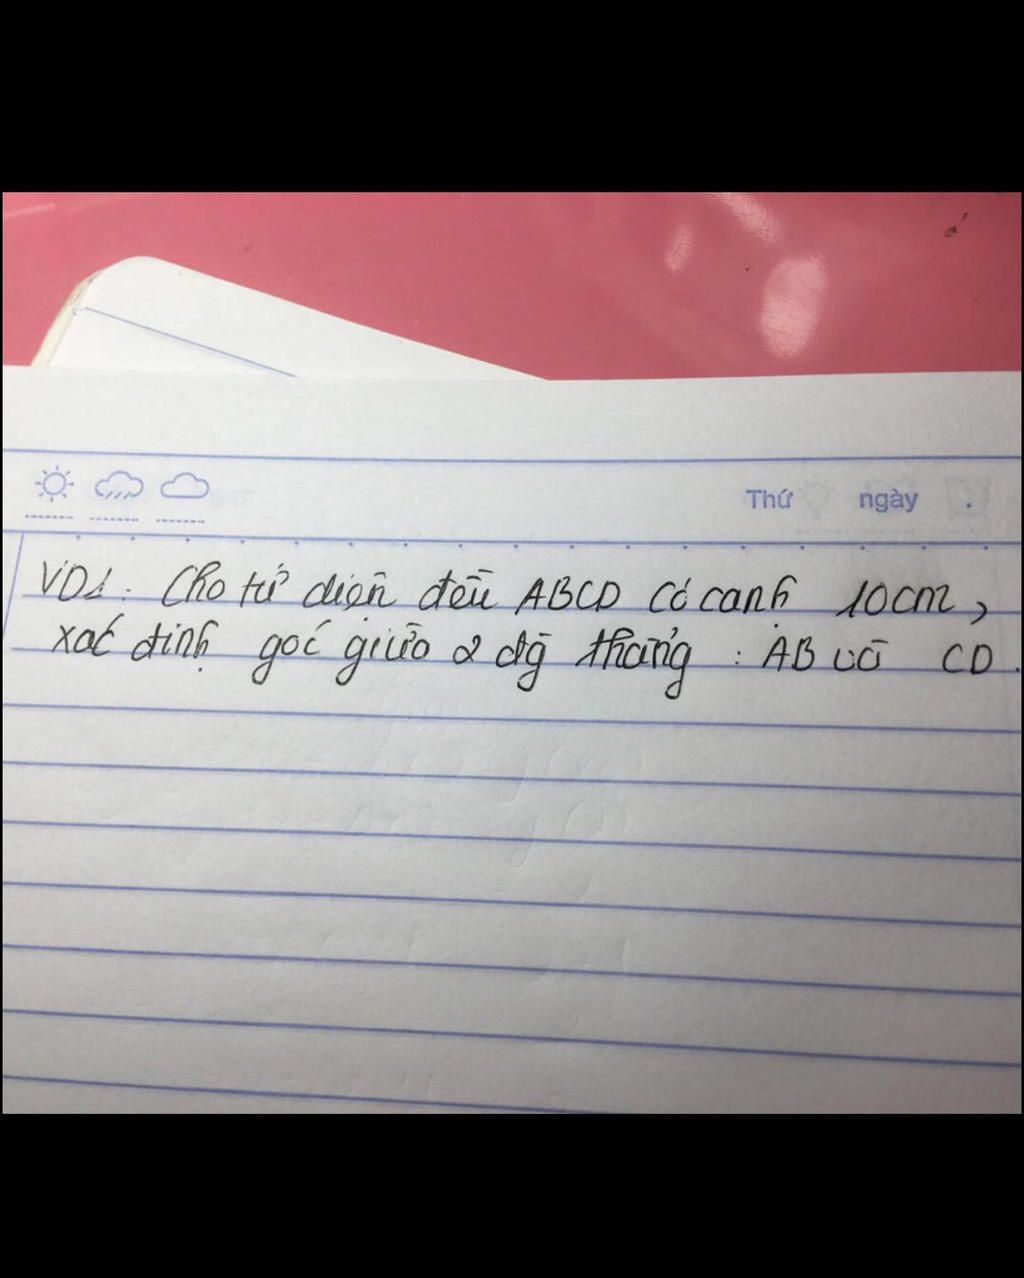 Thứ ngày .
VD1. Cho tứ diện đều ABCD có cạnh 10cm,
xác định góc giữa 2 đg thẳng : AB và CD.